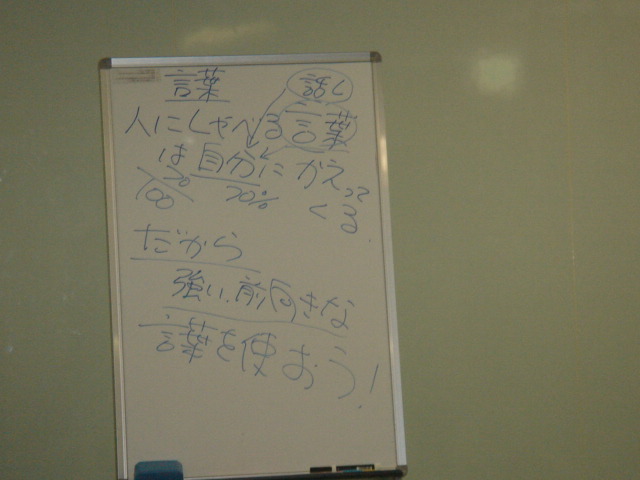 言葉
話し
人にしゃべる言葉
は自分にかえって
くる
70/100
70%
だから
強い、前向きな
言葉を使おう!